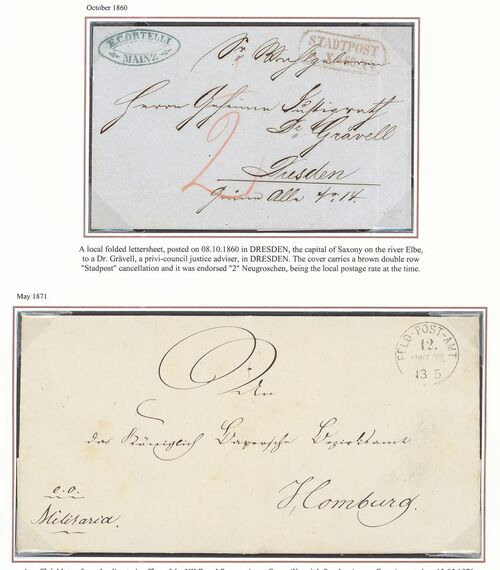 October 1860
F.CORTELLI
MAINZ
STADTPOST
Sr. Wohlgeboren
Herrn Geheime Justizrath
Dr. Grävell
Dresden
Grüne Alle No. 14.
2
A local folded lettersheet, posted on 08.10.1860 in DRESDEN, the capital of Saxony on the river Elbe,
to a Dr. Grävell, a privi-council justice adviser, in DRESDEN. The cover carries a brown double row
"Stadpost" cancellation and it was endorsed "2" Neugroschen, being the local postage rate at the time.
May 1871
FELD-POST-AMT
12.
13 5
An
das Königlich Bayersche Bezirksamt
Homburg.
e.o.
Militaria.